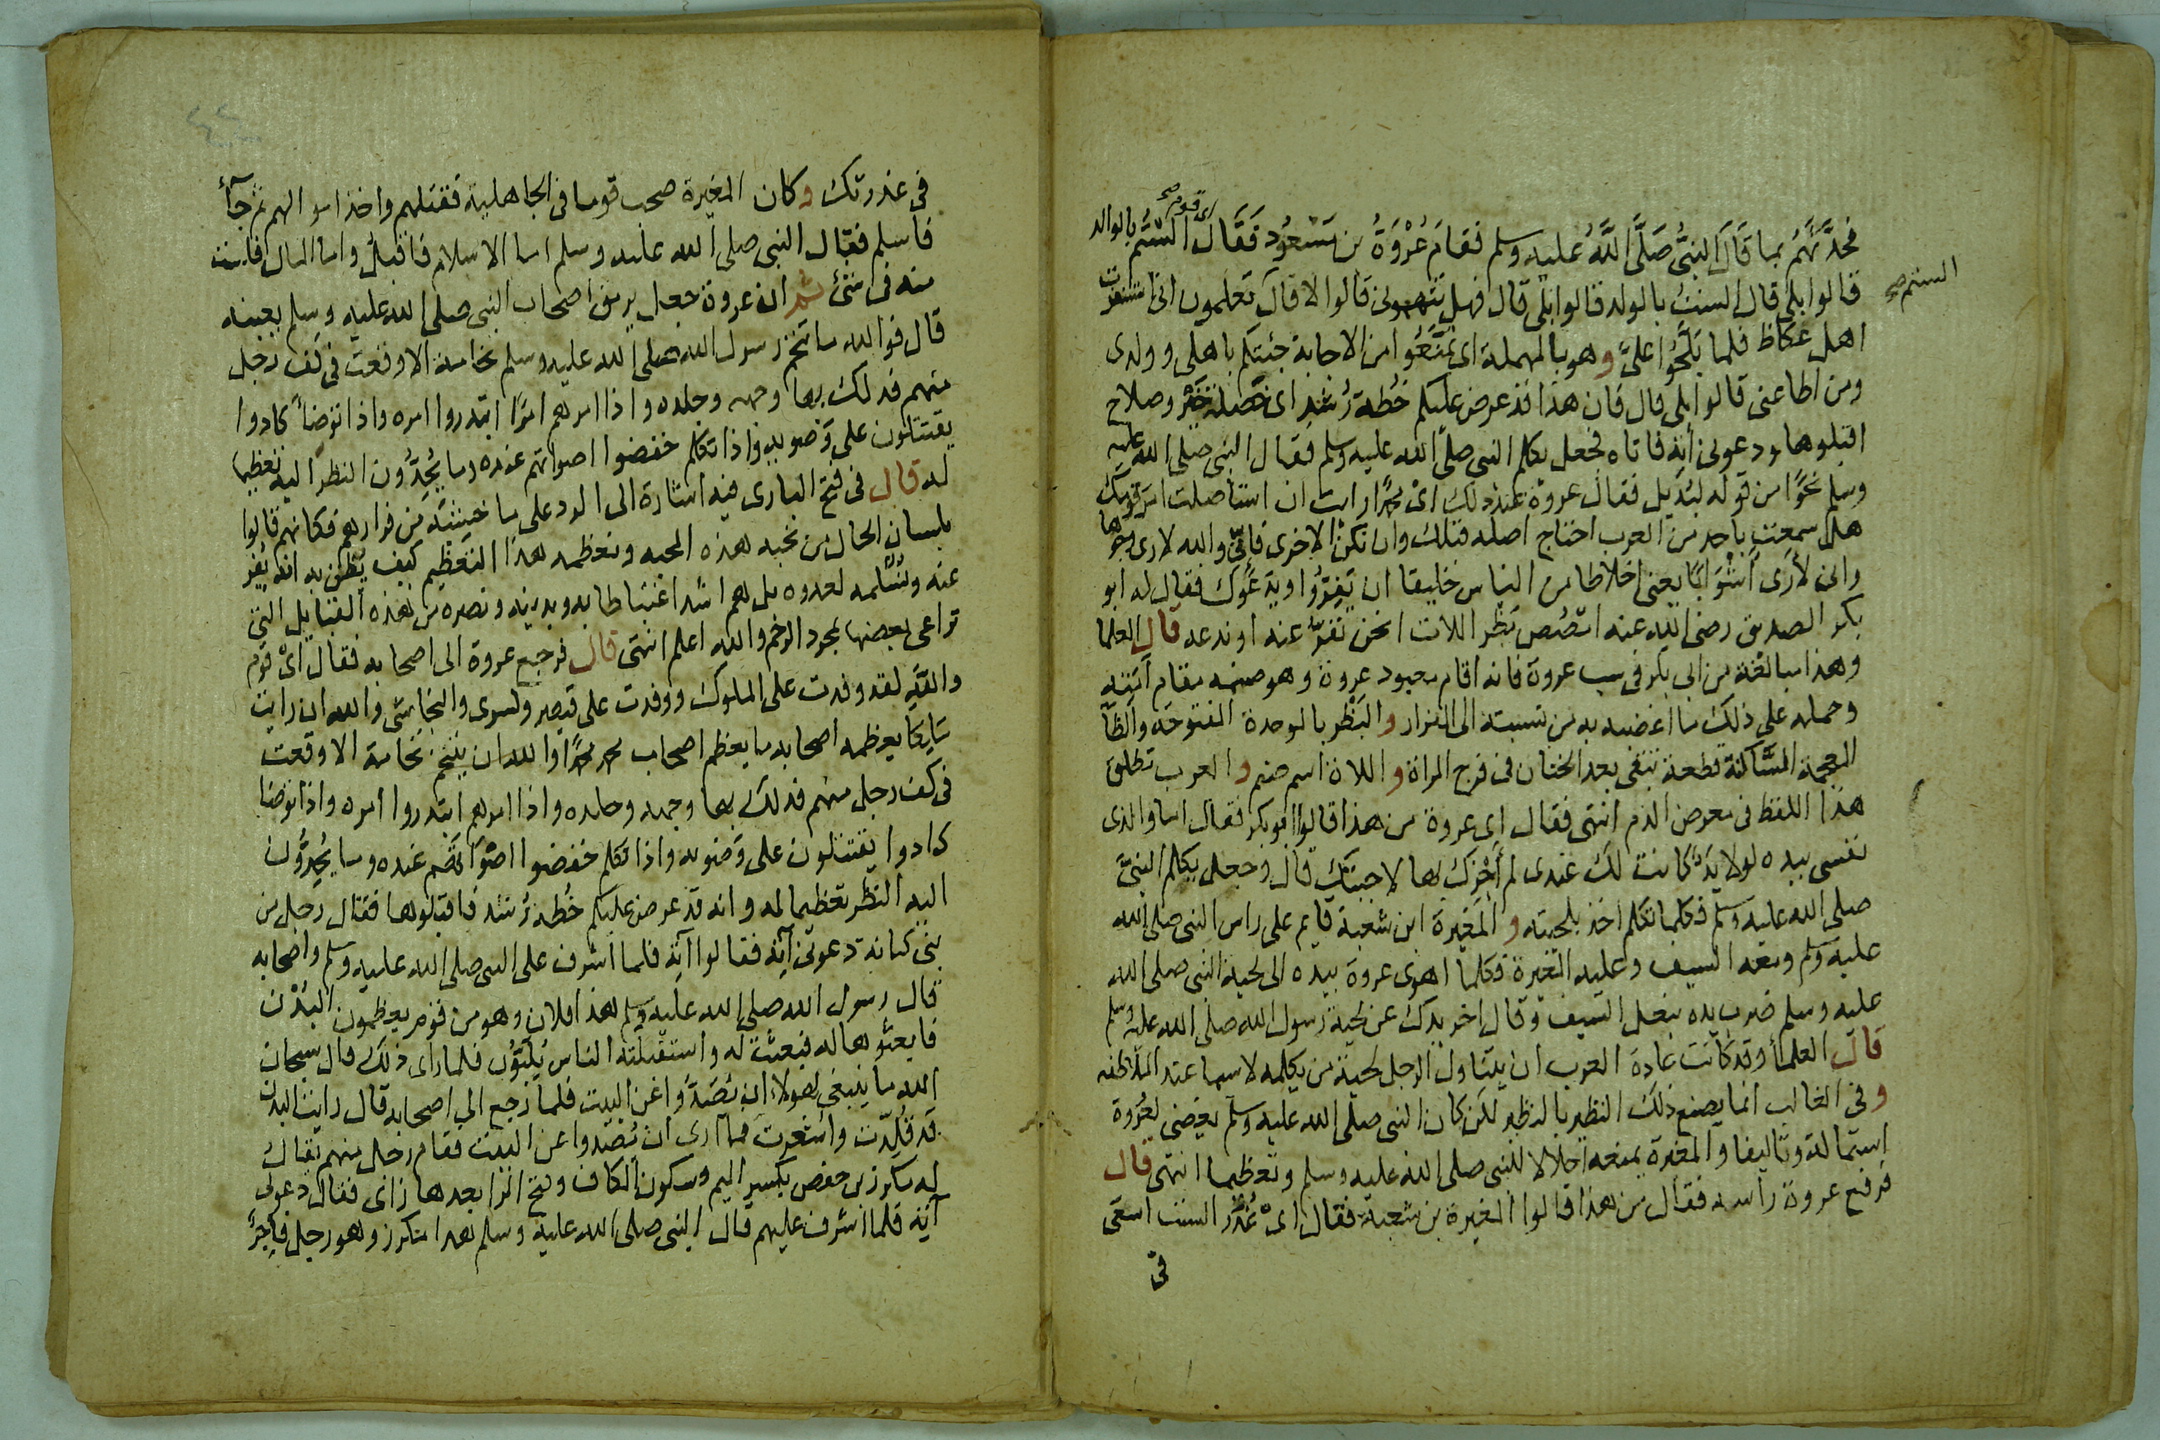 فحدثهم بما قال النبي صلى الله عليه وسلم فقام عروة بن مسعود فقال اي قوم صح الستم بالوالد
الستم صح
قالوا بلى قال الست بالولد قالوا بلى قال فهل تتهموني قالوا لا قال تعلمون اني استنفرت
اهل عكاظ فلما بلحوا علي وهو بالمهملة اى تمنعوا من الاجابة جئتكم باهلى وولدى
ومن اطاعنى قالوا بلى قال فان هذا قد عرض عليكم خُطة رُشد اى خصلة خير وصلاح
اقبلوها ودعونى آته فاتاه فجعل يكلم النبى صلى الله عليه وسلم فقال النبى صلى الله عليه
وسلم نحوًا من قوله لبُدَيل فقال عروة عند ذلك اىْ محمدُ ارايت ان استاصلت امر قومك
هل سمعت باحد من العرب اجتاح اصله قبلك وان تكن الاخرى فانى والله لارى وجوها
وانى لأرى أشْوَابًا يعنى اخلاطا من الناس خليقا ان يَفِرُّوا ويدَعُوك فقال له ابو
بكر الصديق رضى الله عنه امصُص بَظْر اللات انحن نفرّ عنه او ندعه قال العلما
وهذا مبالغة من ابى بكر فى سب عروة فانه اقام معبود عروة وهو صنمه مقام امه
وحمله على ذلك ما اغضبه به من نسبته الى الفرار والبَظْر بالموحدة المفتوحة والظا
المعجمة السَّاكنة قطعة تبقى بعد الختان فى فرج المراة واللات اسم صنم والعرب تطلق
هذا اللفظ فى معرض الذم انتهى فقال اى عروة من هذا قالوا ابو بكر فقال اما والذى
نفسى بيده لولا يَدٌ كانت لك عندى لم أجْزك بها لاجبتك قال وجعل يكلم النبىّ
صلى الله عليه وسلم فكلما تكلم اخذ بلحيته والمغيرة ابن شعبة قايم على راس النبى صلى الله
عليه وسلم ومعه السيف وعليه المغفر فكلما اهوى عروة بيده الى لحية النبى صلى الله
عليه وسلم ضرب يده بنعل السيف وقال اخر يدك عن لحية رسول الله صلى الله عليه وسلم
قال العلمأ وقد كانت عادة العرب ان يتناول الرجل لحية من يكلمه لا سيما عند الملاطفه
وفى الغالب انما يصنع ذلك النظير بالنظير لكن كان النبى صلى الله عليه وسلم يغضى لعُروة
استمالة وتاليفا والمغيرة يمنعه اجلالا للنبى صلى الله عليه وسلم وتعظيما انتهى قال
فرفع عروة راسه فقال من هذا قالوا المغيرة بن شعبة فقال اىْ غُدَرُ الست اسعى
فى
في غدرتك وكان المغيرة صحب قوما فى الجاهلية فقتلهم واخذ اموالهم ثم جآء
فاسلم فقال النبى صلى الله عليه وسلم اما الاسلام فاقبل واما المال فلست
منه فى شئ ثم ان عروة جعل يرمق اصحاب النبى صلى الله عليه وسلم بعينه
قال فوالله ما تنخم رسول الله صلى الله عليه وسلم نخامة الا وقعت فى كف رجل
منهم فدلك بها وجهه وجلده واذا امرهم امرًا ابتدروا امره واذا توضأ كادوا
يقتتلون على وَضوءه واذا تكلم خفضوا اصواتهم عنده وما يُحِدُّون النظر اليه تعظيما
له قال فى فتح البارى فيه اشارة الى الرد على ما خشيَه من فرارهم فكانهم قالوا
بلسان الحال من نحبه هذه المحبه ونعظمه هذا التعظيم كيف يُظن به انه يفر
عنه ونُسْلمه لعدوه بل هم اشد اغتباطا به وبدينه ونصره من هذه القبايل التى
تراعى بعضها بمجرد الرحم والله اعلم انتهى قال فرجع عروة الى اصحابه فقال اىْ قوم
واللهِ لقد وفدت على الملوك ووفدت على قيصر وكسرى والنجاشى والله ان رايت
مَلِكًا يعظمه اصحابه ما يعظم اصحاب محمد محمدًا والله ان يتنخم نخامة الا وقعت
فى كف رجل منهم فدلك بها وجهه وجلده واذا امرهم ابتدروا امره واذا توضا
كادوا يقتتلون على وَضوئه واذا تكلم خفضوا اصواتهم عنده وما يُحِدُّون
اليه النظر تعظيما له وانه قد عرض عليكم خُطة رُشد فاقبلوها فقال رجل من
بنى كنانة دعونى آتِهِ فقالوا آتِهِ فلما اشرف على النبى صلى الله عليه وسلم واصحابه
قال رسول الله صلى الله عليه وسلم هذا فلان وهو من قوم يعظمون البُدْن
فابعثوها له فبعثت له واستقبلته الناس يُلَبُّون فلما راى ذلك قال سبحان
الله ما ينبغى لهولاء ان يُصَدُّوا عن البيت فلما رجع الى اصحابه قال رايت البدن
قد قُلِّدت واشعرت فما ارى ان يُصَدوا عن البيت فقام رجل منهم يقال
له مكرز بن حفص بكسر الميم وسكون الكاف وفتح الرا بعدها زاى فقال دعونى
آتِهِ فلما اشرف عليهم قال النبى صلى الله عليه وسلم هذا مكرز وهو رجل فاجرٌ